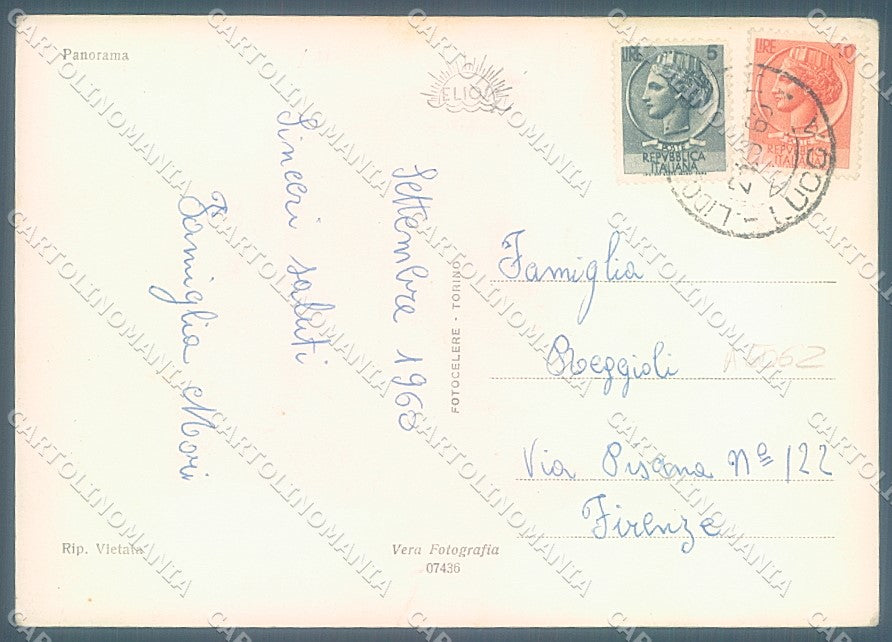 Panorama
ELIO
LIRE 5
POSTE
REPVBBLICA
ITALIANA
LIRE
REPVBBLICA
ITALIANA
Settembre 1963
Sinceri saluti
Famiglia Mori
FOTOCELERE - TORINO
Famiglia
Reggioli
Via Pisana Nº 122
Firenze
Rip. Vietata
Vera Fotografia
07436
CARTOLINOMANIA